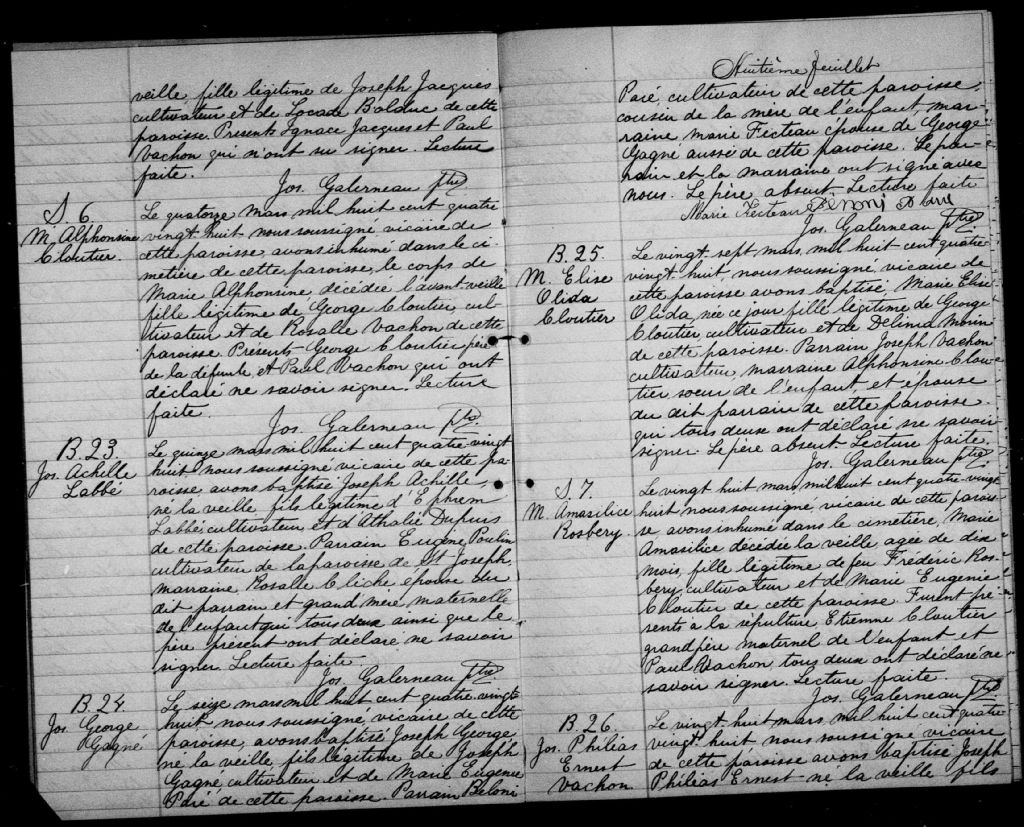 veille, fille légitime de Joseph Jacques
cultivateur et de Locade Bolduc de cette
paroisse. Présents Ignace Jacques et Paul
Vachon qui n'ont su signer. Lecture
faite.
Jos. Galerneau Ptre
S. 6
M. Alphonsine
Cloutier.
Le quatorze mars mil huit cent quatre
vingt huit nous soussigné vicaire de
cette paroisse, avons inhumé dans le ci-
metière de cette paroisse, le corps de
Marie Alphonsine décédée l'avant veille
fille légitime de George Cloutier, cul-
tivateur et de Rosalie Vachon de cette
paroisse. Présents George Cloutier père
de la défunte et Paul Vachon qui ont
déclaré ne savoir signer. Lecture
faite.
Jos. Galerneau Ptre
B. 23.
Jos. Achille
Labbé
Le quinze mars mil huit cent quatre vingt
huit, nous soussigné vicaire de cette pa-
roisse, avons baptisé Joseph Achille,
né la veille, fils légitime d'Ephrem
Labbé cultivateur et d'Athalie Dupuis
de cette paroisse. Parrain Eugène Poulin
cultivateur de la paroisse de St Joseph,
marraine, Rosalie Cliche épouse du
dit parrain et grand'mère maternelle
de l'enfant qui tous deux ainsi que le
père présent ont déclaré ne savoir
signer. Lecture faite.
Jos. Galerneau Ptre
B. 24.
Jos. George
Gagné
Le seize mars mil huit cent quatre vingt
huit nous soussigné, vicaire de cette
paroisse, avons baptisé Joseph George
né la veille, fils légitime de Joseph
Gagné, cultivateur et de Marie Eugenie
Paré de cette paroisse. Parrain Béloni
Huitième feuillet
Paré, cultivateur de cette paroisse,
cousin de la mère de l'enfant, mar-
raine Marie Fecteau épouse de George
Gagné aussi de cette paroisse. Le par-
rain et la marraine ont signé avec
nous. Le père absent Lecture faite
Marie Fecteau Bénoni Paré
Jos. Galerneau Ptre
B. 25.
M. Elise
Olida
Cloutier
Le vingt sept mars, mil huit cent quatre
vingt huit, nous soussigné, vicaire de
cette paroisse avons baptisé Marie Elise
Olida, née ce jour fille légitime de George
Cloutier, cultivateur et de Delima Morin
de cette paroisse. Parrain Joseph Vachon
cultivateur, marraine Alphonsine Clou-
tier soeur de l'enfant, et épouse
du dit parrain de cette paroisse.
qui tous deux ont déclaré ne savoir
signer. Le père absent Lecture faite.
Jos. Galerneau Ptre
S. 7.
M. Amasilice
Rosbery.
Le vingt huit mars, mil huit cent quatre vingt
huit nous soussigné, vicaire de cette parois-
se avons inhumé dans le cimetière, Marie
Amasilice décédée la veille agée de dix
mois, fille légitime de feu Frédéric Ros-
bery, cultivateur et de Marie Eugenie
Cloutier de cette paroisse. Furent pré-
sents à la sépulture Etienne Cloutier
grand père maternel de l'enfant et
Paul Vachon tous deux ont déclaré ne
savoir signer. Lecture faite.
Jos. Galerneau Ptre
B. 26.
Jos. Philias
Ernest
Vachon
Le vingt huit mars, mil huit cent quatre
vingt huit nous soussigné vicaire
de cette paroisse avons baptisé Joseph
Philias Ernest né la veille fils